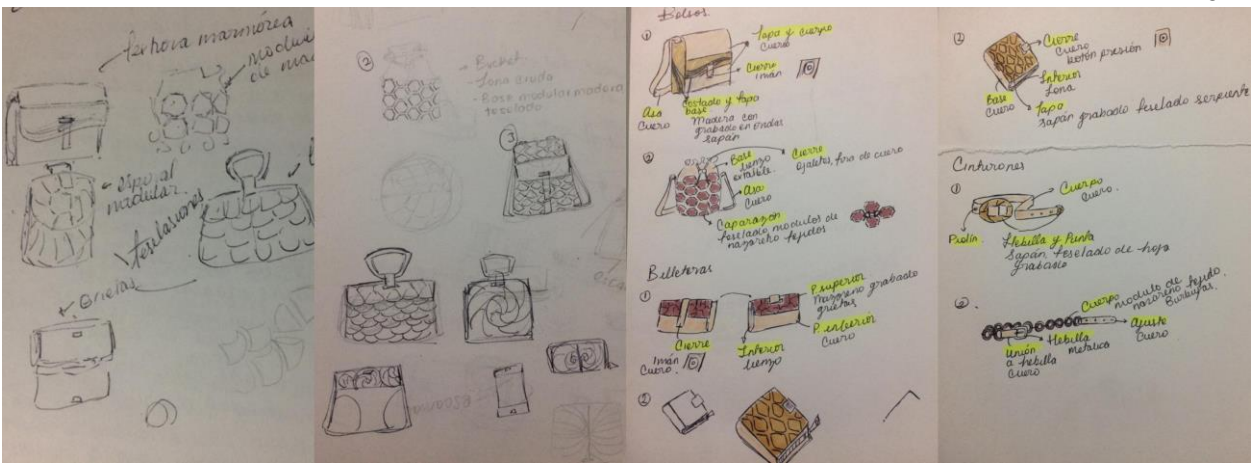 textura marmórea
modular
de ma
modular
teselaciones
Grietas
②
- Bucket
- Lona cruda
- Base modular madera
teselado
③
escama
Bolsos.
①
Tapa y cuerpo
Cuero
Cierre
imán
Asa
Cuero
costado y tapa
base
Madera con
grabado en ondas
sapán
②
Base
lienzo
extraible.
Cierre
Ojaletes, tira de cuero
Asa
Cuero
Caparazon
teselado, modulos de
nazareno tejidos
Billeteras
①
P. superior
Nazareno grabado
grietas
P. inferior
Cuero
Cierre
Imán
Cuero.
Interior
lienzo
②
②
Cierre
Cuero
botón presión
Interior
Lona
Base
Cuero
Tapa
Sapán grabado teselado serpiente
Cinturones
①
Cuerpo
Cuero.
Hebilla y Punta
Sapán, teselado de hoja
grabado
Cuerpo
modulo de
nazareno tejido.
Burbujas.
Ajuste
Cuero
Hebilla
metalica
Unión
a hebilla
Cuero